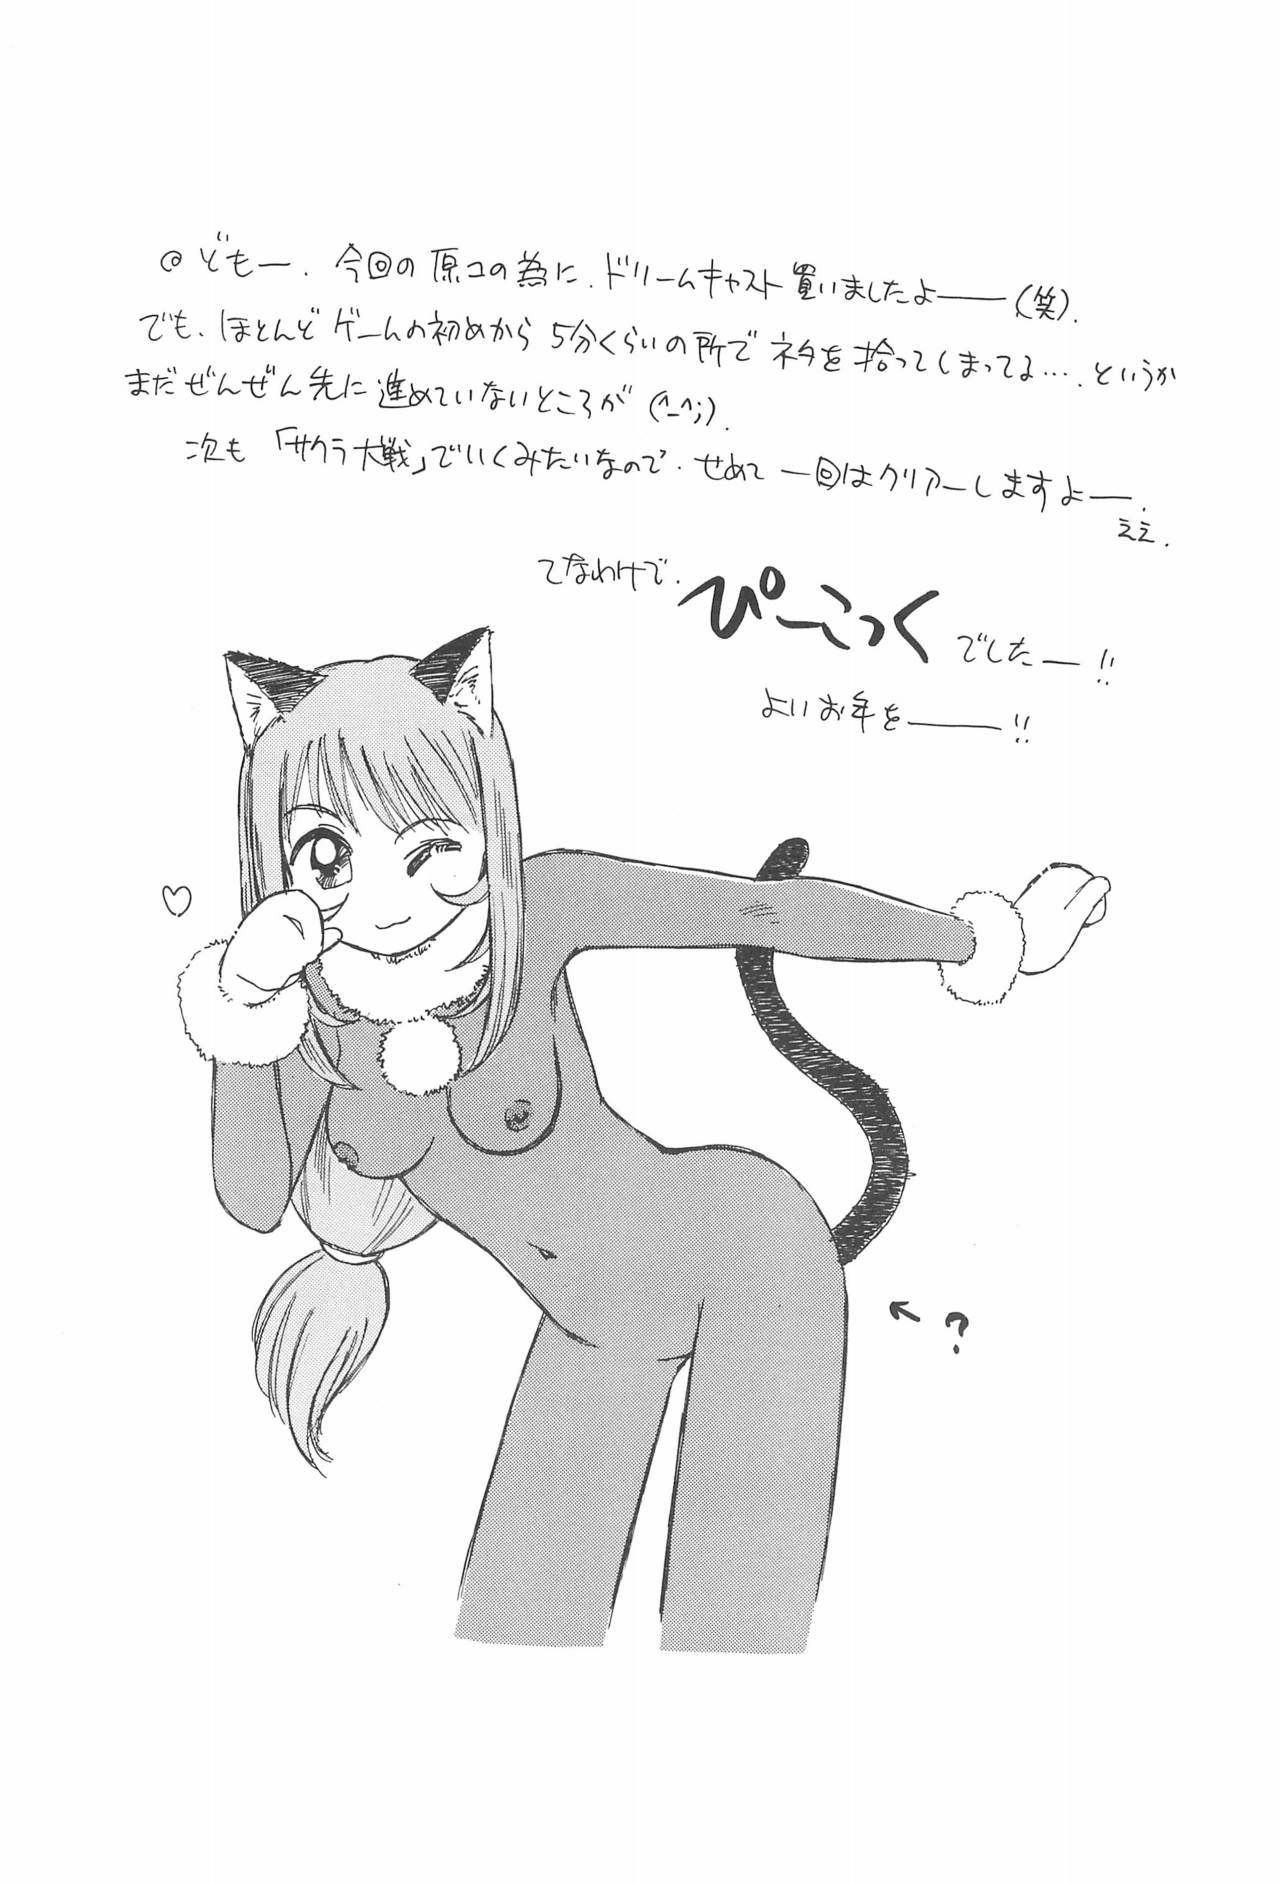 @どもー. 今回の原コの為に、ドリームキャスト買いましたよ――(笑).
でも、ほとんどゲームの初めから5分くらいの所でネタを拾ってしまってる…. というか
まだぜんぜん先に進めていないところが(^-^;).
次も「サクラ大戦」でいくみたいなので. せめて一回はクリアーしますよー.
ええ.
てなわけで. ぴーこっくでしたー!!
よいお年を――!!
?